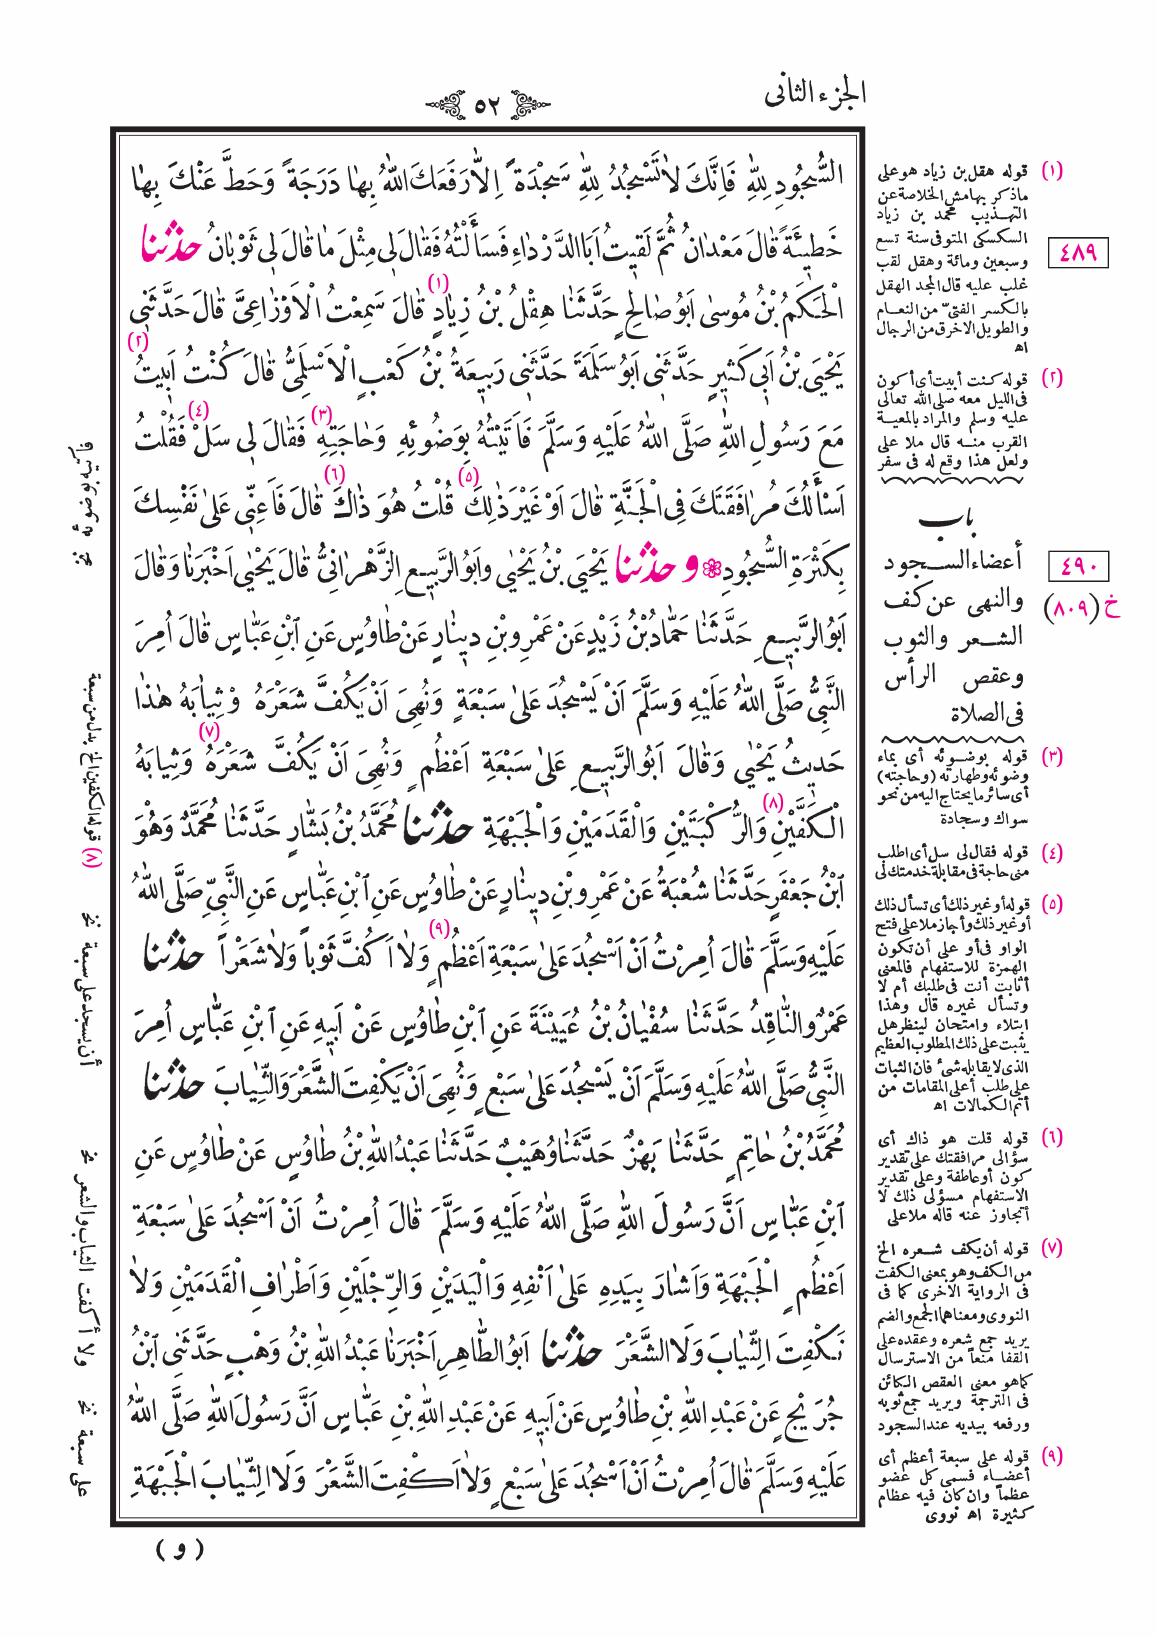 الجزء الثانى
٥٢
السُّجُودِ لِلّٰهِ فَاِنَّكَ لَا تَسْجُدُ لِلّٰهِ سَجْدَةً اِلَّا رَفَعَكَ اللّٰهُ بِهَا دَرَجَةً وَحَطَّ عَنْكَ بِهَا
خَطِيئَةً قَالَ مَعْدَانُ ثُمَّ لَقِيتُ اَبَا الدَّرْدَاءِ فَسَاَلْتُهُ فَقَالَ لِى مِثْلَ مَا قَالَ لِى ثَوْبَانُ حدثنا
الْحَكَمُ بْنُ مُوسٰى اَبُو صَالِحٍ حَدَّثَنَا هِقْلُ بْنُ زِيَادٍ (١) قَالَ سَمِعْتُ الْاَوْزَاعِىَّ قَالَ حَدَّثَنِى
يَحْيَى بْنُ اَبِى كَثِيرٍ حَدَّثَنِى اَبُو سَلَمَةَ حَدَّثَنِى رَبِيعَةُ بْنُ كَعْبٍ الْاَسْلَمِىُّ قَالَ كُنْتُ اَبِيتُ (٢)
مَعَ رَسُولِ اللّٰهِ صَلَّى اللّٰهُ عَلَيْهِ وَسَلَّمَ فَاَتَيْتُهُ بِوَضُوئِهِ وَحَاجَتِهِ (٣) فَقَالَ لِى سَلْ (٤) فَقُلْتُ
اَسْأَلُكَ مُرَافَقَتَكَ فِى الْجَنَّةِ قَالَ اَوْ غَيْرَ ذٰلِكَ (٥) قُلْتُ هُوَ ذَاكَ (٦) قَالَ فَاَعِنِّى عَلٰى نَفْسِكَ
بِكَثْرَةِ السُّجُودِ ۞ و حدثنا يَحْيَى بْنُ يَحْيٰى وَاَبُو الرَّبِيعِ الزَّهْرَانِىُّ قَالَ يَحْيٰى اَخْبَرَنَا وَقَالَ
اَبُو الرَّبِيعِ حَدَّثَنَا حَمَّادُ بْنُ زَيْدٍ عَنْ عَمْرِو بْنِ دِينَارٍ عَنْ طَاوُسٍ عَنِ ابْنِ عَبَّاسٍ قَالَ اُمِرَ
النَّبِىُّ صَلَّى اللّٰهُ عَلَيْهِ وَسَلَّمَ اَنْ يَسْجُدَ عَلٰى سَبْعَةٍ وَنُهِىَ اَنْ يَكُفَّ شَعْرَهُ وَثِيَابَهُ هٰذَا
حَدِيثُ يَحْيٰى وَقَالَ اَبُو الرَّبِيعِ عَلٰى سَبْعَةِ اَعْظُمٍ وَنُهِىَ اَنْ يَكُفَّ شَعْرَهُ (٧) وَثِيَابَهُ
الْكَفَّيْنِ (٨) وَالرُّكْبَتَيْنِ وَالْقَدَمَيْنِ وَالْجَبْهَةِ حدثنا مُحَمَّدُ بْنُ بَشَّارٍ حَدَّثَنَا مُحَمَّدٌ وَهُوَ
ابْنُ جَعْفَرٍ حَدَّثَنَا شُعْبَةُ عَنْ عَمْرِو بْنِ دِينَارٍ عَنْ طَاوُسٍ عَنِ ابْنِ عَبَّاسٍ عَنِ النَّبِىِّ صَلَّى اللّٰهُ
عَلَيْهِ وَسَلَّمَ قَالَ اُمِرْتُ اَنْ اَسْجُدَ عَلٰى سَبْعَةِ اَعْظُمٍ (٩) وَلَا اَكُفَّ ثَوْبًا وَلَا شَعْرًا حدثنا
عَمْرٌو النَّاقِدُ حَدَّثَنَا سُفْيَانُ بْنُ عُيَيْنَةَ عَنِ ابْنِ طَاوُسٍ عَنْ اَبِيهِ عَنِ ابْنِ عَبَّاسٍ اُمِرَ
النَّبِىُّ صَلَّى اللّٰهُ عَلَيْهِ وَسَلَّمَ اَنْ يَسْجُدَ عَلٰى سَبْعٍ وَنُهِىَ اَنْ يَكْفِتَ الشَّعْرَ وَالثِّيَابَ حدثنا
مُحَمَّدُ بْنُ حَاتِمٍ حَدَّثَنَا بَهْزٌ حَدَّثَنَا وُهَيْبٌ حَدَّثَنَا عَبْدُ اللّٰهِ بْنُ طَاوُسٍ عَنْ طَاوُسٍ عَنِ
ابْنِ عَبَّاسٍ اَنَّ رَسُولَ اللّٰهِ صَلَّى اللّٰهُ عَلَيْهِ وَسَلَّمَ قَالَ اُمِرْتُ اَنْ اَسْجُدَ عَلٰى سَبْعَةِ
اَعْظُمٍ الْجَبْهَةِ وَاَشَارَ بِيَدِهِ عَلٰى اَنْفِهِ وَالْيَدَيْنِ وَالرِّجْلَيْنِ وَاَطْرَافِ الْقَدَمَيْنِ وَلَا
نَكْفِتَ الثِّيَابَ وَلَا الشَّعْرَ حدثنا اَبُو الطَّاهِرِ اَخْبَرَنَا عَبْدُ اللّٰهِ بْنُ وَهْبٍ حَدَّثَنِى ابْنُ
جُرَيْجٍ عَنْ عَبْدِ اللّٰهِ بْنِ طَاوُسٍ عَنْ اَبِيهِ عَنْ عَبْدِ اللّٰهِ بْنِ عَبَّاسٍ اَنَّ رَسُولَ اللّٰهِ صَلَّى اللّٰهُ
عَلَيْهِ وَسَلَّمَ قَالَ اُمِرْتُ اَنْ اَسْجُدَ عَلٰى سَبْعٍ وَلَا اَكْفِتَ الشَّعْرَ وَلَا الثِّيَابَ الْجَبْهَةِ
( و )
(١) قوله هقل بن زياد هو على
ماذكر بهامش الخلاصة عن
التهذيب محمد بن زياد
السكسكى المتوفى سنة تسع
وسبعين ومائة وهقل لقب
غلب عليه قال المجد الهقل
بالكسر الفتىّ من النعام
والطويل الاخرق من الرجال
اه
٤٨٩
(٢) قوله كنت أبيت أى أكون
فى الليل معه صلى الله تعالى
عليه وسلم والمراد بالمعية
القرب منه قال ملا على
ولعل هذا وقع له فى سفر
باب
أعضاء السجود
والنهى عن كف
الشعر والثوب
وعقص الرأس
فى الصلاة
٤٩٠
خ (٨٠٩)
(٣) قوله بوضوئه أى بماء
وضوئه وطهارته (وحاجته)
أى سائر ما يحتاج اليه من نحو
سواك وسجادة
(٤) قوله فقال لى سل أى اطلب
منى حاجة فى مقابلة خدمتك لى
(٥) قوله أو غير ذلك أى تسأل ذلك
أو غير ذلك وأجاز ملا على فتح
الواو فى أو على أن تكون
الهمزة للاستفهام فالمعنى
أثابت أنت فى طلبك أم لا
وتسأل غيره قال وهذا
ابتلاء وامتحان لينظر هل
يثبت على ذلك المطلوب العظيم
الذى لا يقابله شئ فان الثبات
على طلب أعلى المقامات من
أتم الكمالات اه
(٦) قوله قلت هو ذاك أى
سؤالى مرافقتك على تقدير
كون أو عاطفة وعلى تقدير
الاستفهام مسؤلى ذلك لا
أتجاوز عنه قاله ملا على
(٧) قوله أن يكف شعره الخ
من الكف وهو بمعنى الكفت
فى الرواية الاخرى كما فى
النووى ومعناهما الجمع والضم
يريد جمع شعره وعقده على
القفا منعاً من الاسترسال
كما هو معنى العقص الكائن
فى الترجمة ويريد جمع ثوبه
ورفعه بيديه عند السجود
(٩) قوله على سبعة أعظم أى
أعضاء فسمى كل عضو
عظماً وان كان فيه عظام
كثيرة اه نووى
(٨) قوله الكفين الخ بدل من سبعة
أن يسجد على سبعة نخ
ولا أكفت الثياب والشعر نخ
على سبعة نخ